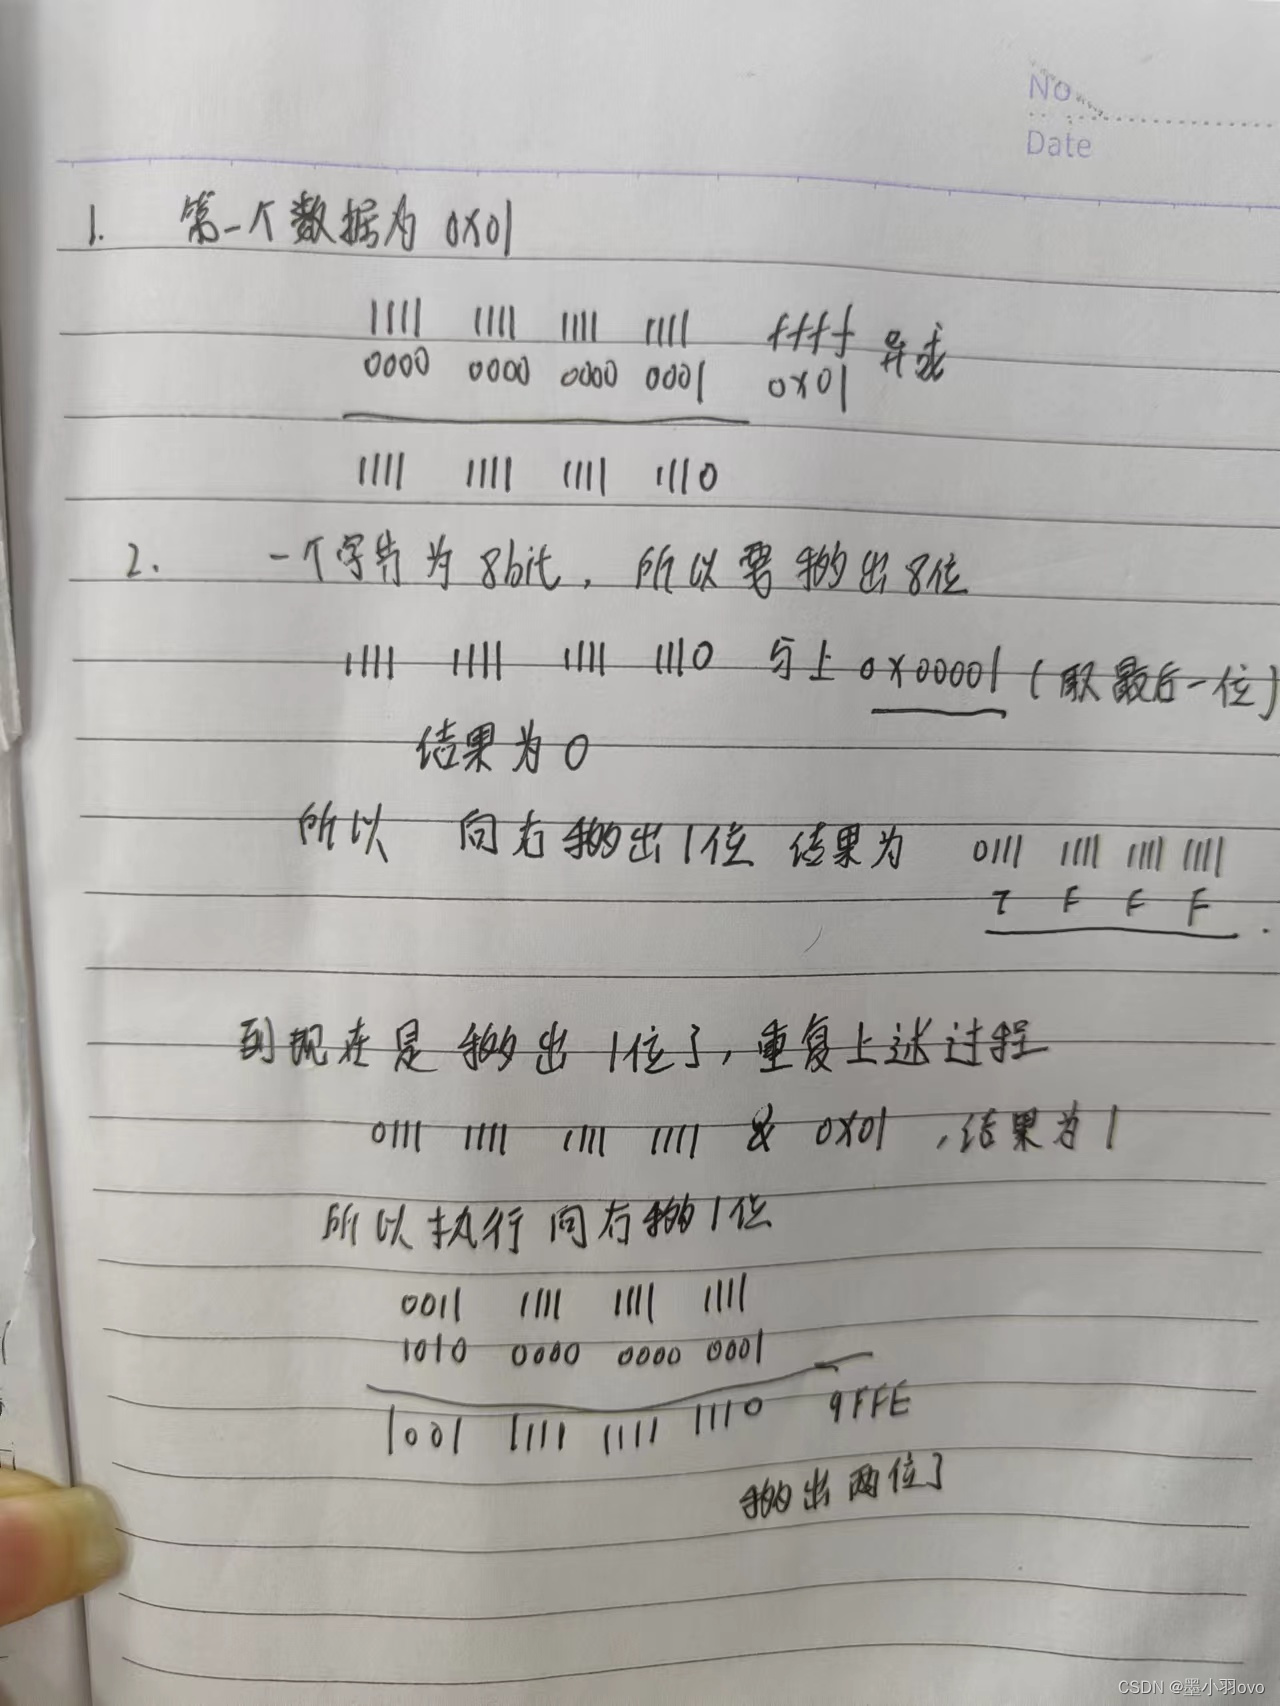 No
Date
1. 第一个数据为 0x01
1111 1111 1111 1111 ffff 异或
0000 0000 0000 0001 0x01
1111 1111 1111 1110
2. 一个字节为8bit, 所以要移出8位
1111 1111 1111 1110 与上 0x00001 (取最后一位)
结果为0
所以 向右移出1位 结果为 0111 1111 1111 1111
7 F F F
到现在是移出1位了,重复上述过程
0111 1111 1111 1111 & 0x01 ,结果为1
所以执行向右移1位
0011 1111 1111 1111
1010 0000 0000 0001
1001 1111 1111 1110 9FFE
移出两位了
CSDN @墨小羽ovo